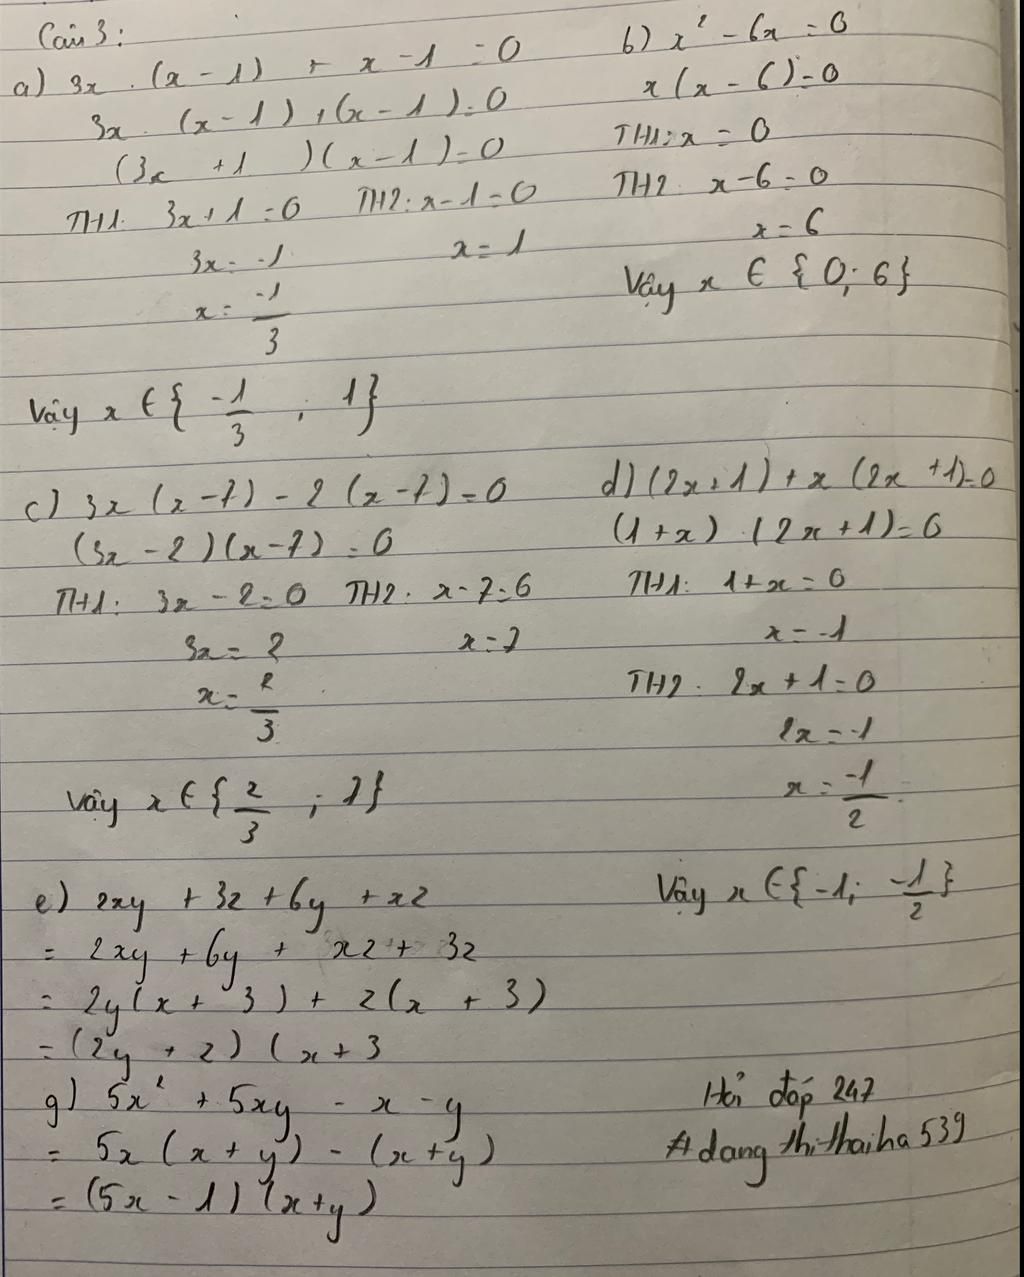 Câu 3:
a) 3x . (x - 1) + x - 1 = 0
3x . (x - 1) + (x - 1) = 0
(3x + 1 )(x - 1) = 0
TH1: 3x + 1 = 0 TH2: x - 1 = 0
3x = -1 x = 1
x = -1/3
Vậy x ∈ { -1/3 ; 1}
b) x² - 6x = 0
x(x - 6) = 0
TH1: x = 0
TH2: x - 6 = 0
x = 6
Vậy x ∈ {0; 6}
c) 3x (x - 7) - 2 (x - 7) = 0
(3x - 2)(x - 7) = 0
TH1: 3x - 2 = 0 TH2: x - 7 = 0
3x = 2 x = 7
x = 2/3
Vậy x ∈ { 2/3 ; 7}
d) (2x + 1) + x (2x + 1) = 0
(1 + x) . (2x + 1) = 0
TH1: 1 + x = 0
x = -1
TH2: 2x + 1 = 0
2x = -1
x = -1/2
Vậy x ∈ {-1; -1/2}
e) 2xy + 3z + 6y + xz
= 2xy + 6y + xz + 3z
= 2y(x + 3) + z(x + 3)
= (2y + z) (x + 3
g) 5x² + 5xy - x - y
= 5x (x + y) - (x + y)
= (5x - 1) (x + y)
Hỏi đáp 247
# dang thi thai ha 539